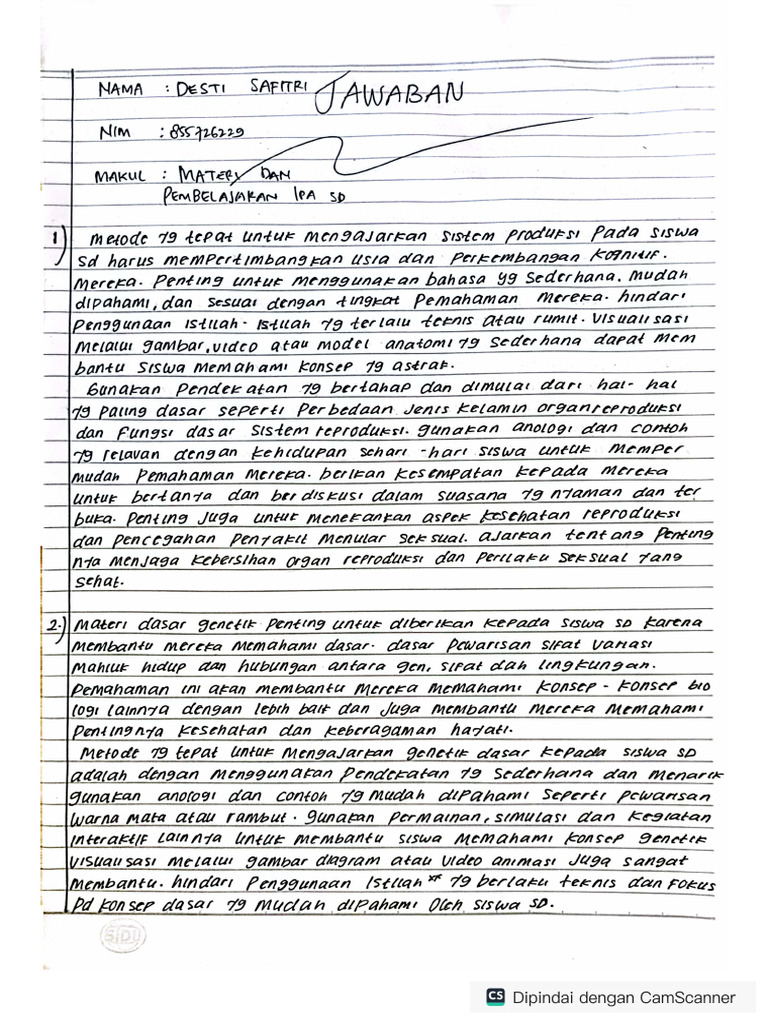 NAMA : DESTI SAFITRI JAWABAN
NIM : 855726229
MAKUL : MATERI DAN
PEMBELAJARAN IPA SD
1) Metode yg tepat untuk mengajarkan sistem produksi pada siswa
sd harus mempertimbangkan usia dan perkembangan kognitif.
Mereka. Penting untuk menggunakan bahasa yg sederhana. mudah
dipahami, dan sesuai dengan tingkat pemahaman mereka. hindari
penggunaan istilah-istilah yg terlalu teknis atau rumit. Visualisasi
melalui gambar, video atau model anatomi yg sederhana dapat mem
bantu siswa memahami konsep yg astrak.
Gunakan pendekatan yg bertahap dan dimulai dari hal-hal
yg paling dasar seperti perbedaan jenis kelamin organ reproduksi
dan fungsi dasar sistem reproduksi. gunakan anologi dan contoh
yg relavan dengan kehidupan sehari-hari siswa untuk memper
mudah pemahaman mereka. berikan kesempatan kepada mereka
untuk bertanya dan berdiskusi dalam suasana yg nyaman dan ter
buka. Penting juga untuk menekankan aspek kesehatan reproduksi
dan pencegahan penyakit menular seksual. ajarkan tentang penting
nya menjaga kebersihan organ reproduksi dan perilaku seksual yang
sehat.
2.) Materi dasar genetik penting untuk diberikan kepada siswa sd karena
membantu mereka memahami dasar-dasar pewarisan sifat variasi
mahluk hidup dan hubungan antara gen, sifat dah lingkungan.
Pemahaman ini akan membantu mereka memahami konsep-konsep bio
logi lainnya dengan lebih baik dan juga membantu mereka memahami
pentingnya kesehatan dan keberagaman hayati.
Metode yg tepat untuk mengajarkan genetik dasar kepada siswa SD
adalah dengan menggunakan pendekatan yg sederhana dan menarik
gunakan anologi dan contoh yg mudah dipahami seperti pewarisan
warna mata atau rambut. gunakan permainan, simulasi dan kegiatan
interaktif lainnya untuk membantu siswa memahami konsep genetik
visualisasi melalui gambar diagram atau video animasi juga sangat
membantu. hindari penggunaan istilah" yg berlaku teknis dan fokus
pd konsep dasar yg mudah dipahami oleh siswa SD.
SIDU
CS Dipindai dengan CamScanner